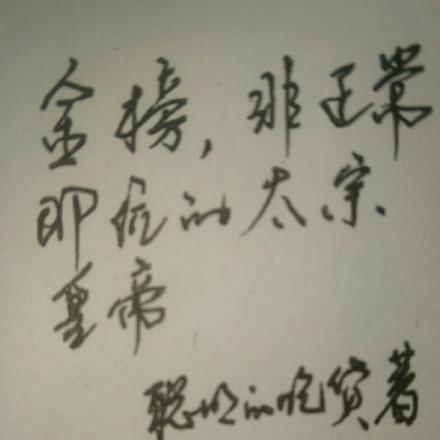 金榜，非正常
即位的太宗
皇帝
聪明的吃货著